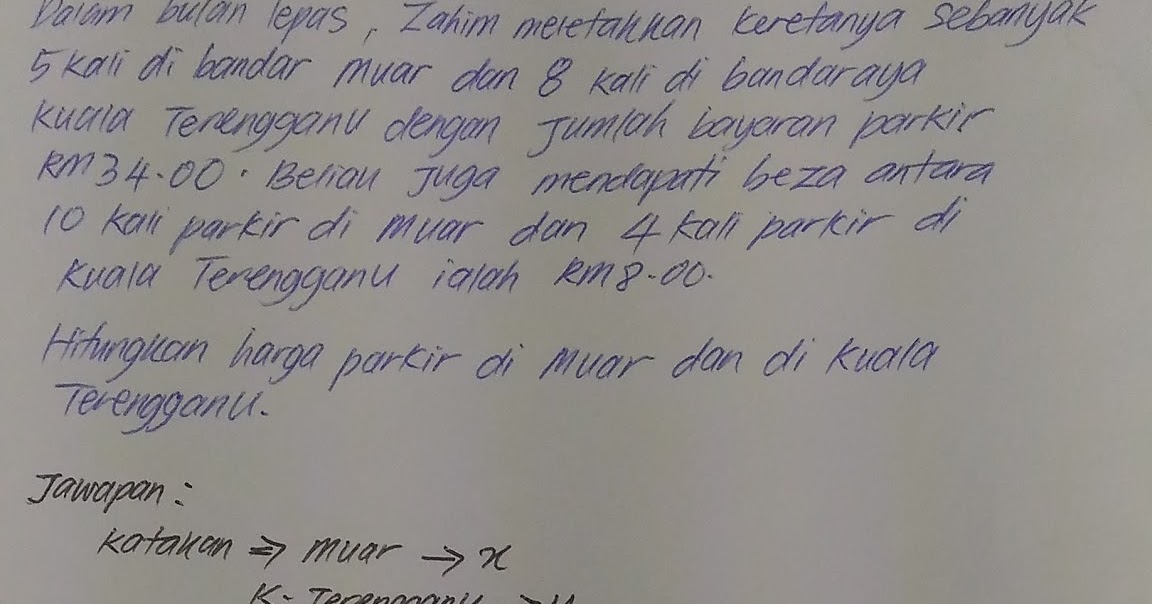 Dalam bulan lepas, Zahim meletakkan keretanya sebanyak
5 kali di bandar muar dan 8 kali di bandaraya
kuala Terengganu dengan Jumlah bayaran parkir
RM34.00. Beliau Juga mendapati beza antara
10 kali parkir di muar dan 4 kali parkir di
Kuala Terengganu ialah RM8.00.
Hitungkan harga parkir di Muar dan di Kuala
Terengganu.
Jawapan:
Katakan ⇒ muar → x
K. Terengganu → y